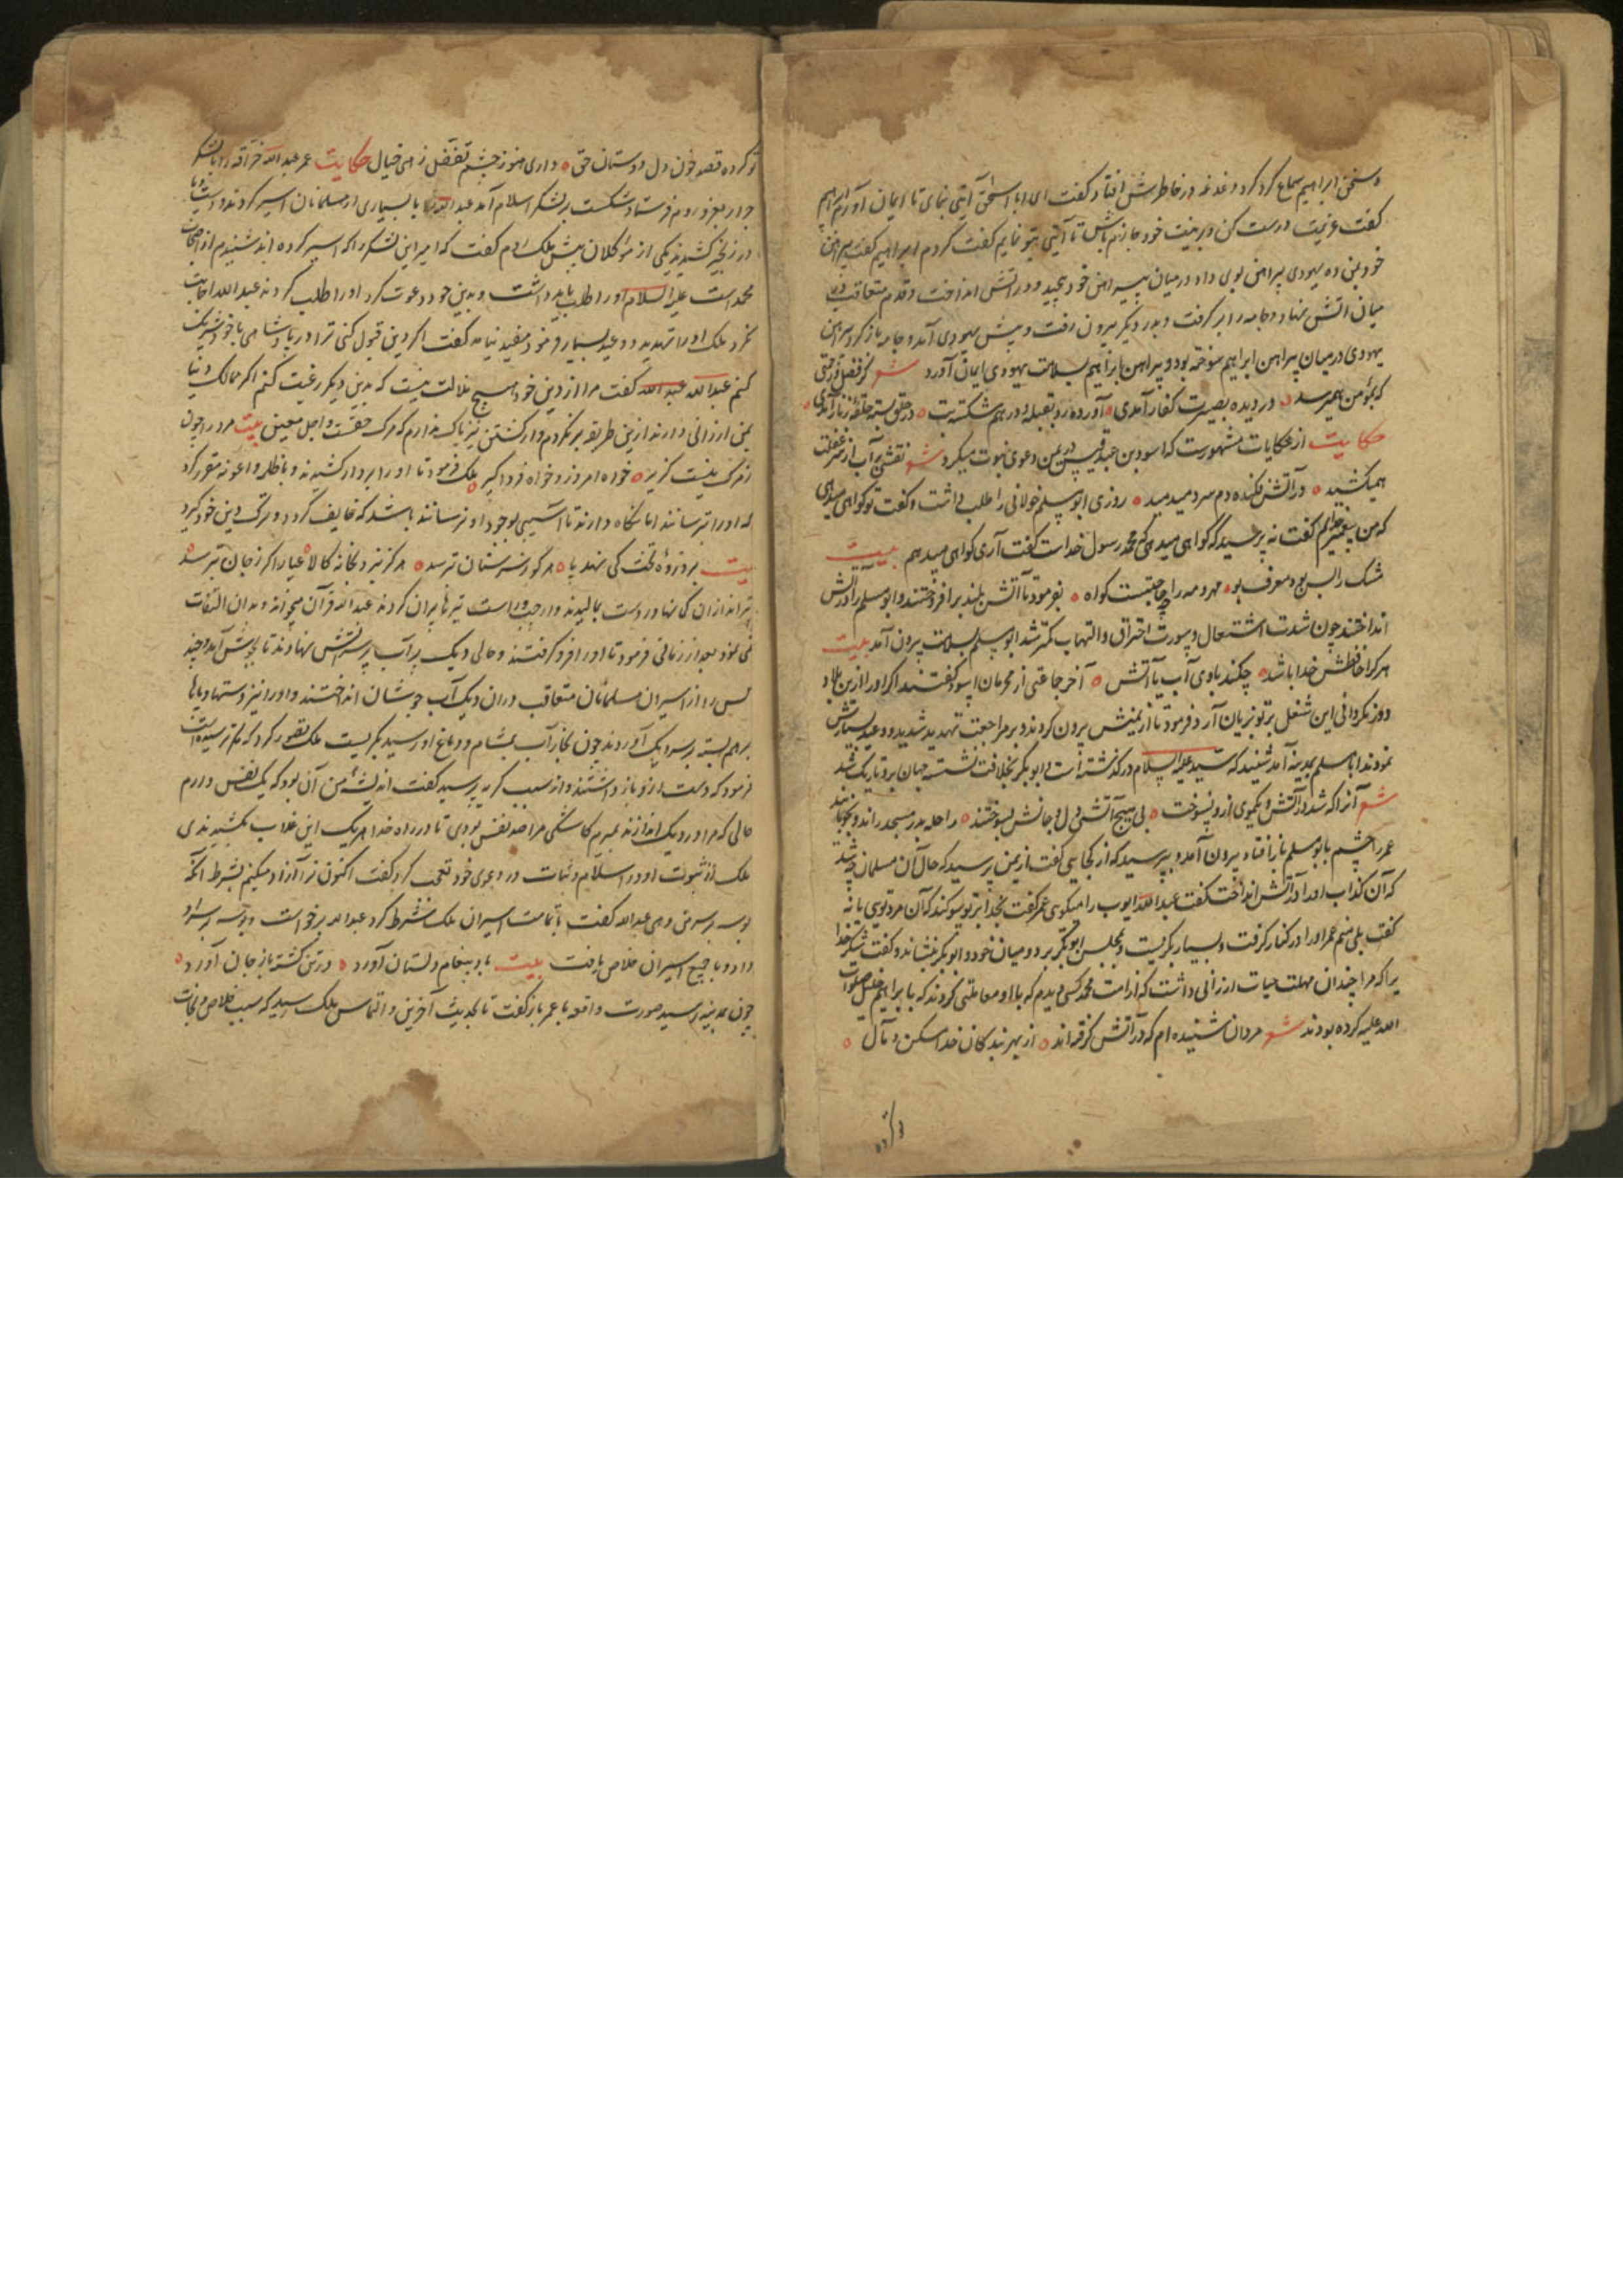 و سخن ابراهیم سماع کرد کرد و غدغه در خاطرش افتاد کفت ای ابا اسحق آیتی بنمای تا ایمان آورم ابراهیم
کفت عزیمت درست کن و بر نیت خود جازم باش تا آیتی بتو نمایم کفت کردم ابراهیم کفت پیراهن
خود بمن ده یهودی پیراهن بوی داد در میان پیراهن خود پیچید و در اتش انداخت و قدم متعاقب در
میان اتش نهاد و جامه را بر کرفت و بدر دیکر بیرون رفت و پیش یهودی آمد و جامه باز کرد پیراهن
یهودی در میان پیراهن ابراهیم سوخته بود و پیراهن ابراهیم بسلامت یهودی ایمان آورد شعر کز فضل
که بمؤمن همیرسد در دیده بصیرت کفار آمدی آورده رو بقبله و در هم شکسته بت در حلق بسته حلقه زنار آمدی
حکایت از حکایات مشهورست که اسود بن در یمن دعوی نبوت میکرد شعر نقش بر آب از سر غفلت
همیکشید در آتش فکنده دم سرد میدمید روزی ابو مسلم خولانی را طلب داشت و کفت تو کواهی میدهی
که من پیغمبرم کفت نه پرسید که کواهی میدهی که محمد رسول خداست کفت آری کواهی میدهم بیت
مشک را بس بود معرف بو مهر و مه را چه حاجتست کواه بفرمود تا آتش بلند بر افروختند و ابو مسلم را در آتش
انداختند چون شدت اشتعال و سورت احتراق و التهاب کمتر شد ابو مسلم بسلامت بیرون آمد بیت
هر کرا حافظش خدا باشد چکند با وی آب یا آتش آخر جماعتی از محرمان اسود کفتند اکر او را ازین بلاد
دور نکردانی این شغل بر تو بزیان آرد فرمود تا از یمنش بیرون کردند و بر مراجعت تهدید شدید و وعید بسیارش
نمودند ابا مسلم بمدینه آمد شنید که سید علیه السلام در کذشته است و ابو بکر بخلافت نشسته جهان برو تاریک شد
شعر آنرا که شد در آتش و یکموی ازو نسوخت بی هیچ آتشی دل و جانش بسوختند راحله بدر مسجد راند و بخوابانید
عمر را چشم بابو مسلم باز افتاد بیرون آمد و بپرسید که از کجایی کفت از یمن پرسید که حال آن مسلمان چه شد
که آن کذاب او را در آتش انداخت کفت عبد الله ایوب را میکوی عمر کفت بخدا بر تو سوکند که آن مرد تویی یا نه
کفت بلی منم عمر او را در کنار کرفت و بسیار بکریست و بمجلس ابو بکر برد و میان خود و ابو بکر بنشاند و کفت شکر خدا
یرا که مرا چندان مهلت حیات ارزانی داشت که از امت محمد کسی دیدم که با او معاملتی کردند که با ابراهیم خلیل صلوات
الله علیه کرده بودند شعر مردان شنیده ام که در آتش کرفته اند از بهر بندکان خدا مسکن و مآل
تو کرده قصد خون دل دوستان حق داری هنوز چشم تفضل زهی خیال حکایت عمر عبد الله را با لشکر
جرار بغزو روم فرستاد شکست بر لشکر اسلام آمد عبد الله با بسیاری از مسلمانان اسیر کردند و دست و پا
در زنجیر کشیدند یکی از موکلان پیش ملک روم کفت که امیر این لشکر را که اسیر کرده اند شنیدم از اصحاب
محمد است علیه السلام او را طلب باید داشت و بدین خود دعوت کرد او را طلب کردند عبد الله اجابت
نکرد ملک او را تهدید و وعید بسیار فرمود مفید نیامد کفت اکر دین قبول کنی ترا در پادشاهی با خود شریک
کنم عبد الله عبد الله کفت مرا از دین خود هیچ ملالت نیست که بدین دیکر رغبت کنم اکر ممالک دنیا
بمن ارزانی دارند ازین طریقه بر نکردم و از کشتن نیز باک ندارم که مرک حقست و اجل معین بیت مرد را چون
ز مرک نیست کزیر خواه امروز و خواه فردا کیر ملک فرمود تا او را بر دار کشیدند و با ظلمه و اعونه مقرر کرد
که او را بترسانند اما نکاه دارند تا آسیبی بوجود او نرسانند باشد که خایف کردد و ترک دین خود کیرد
بیت بر ذروه تخت کی نهد پا هر کو ز سنان ترسد هرکز نبرد بخانه کالا عیار اکر ز جان بترسد
تیر اندازان کمانها در دست بمالیدند و از چپ و راست تیرها پران کردند عبد الله قرآن میخواند و بدان التفات
نمی نمود بعد از زمانی فرمود تا او را فرو کرفتند و حالی دیک پر آب بر سر اتش نهادند تا بجوش آمد و چند
کس را از اسیران مسلمانان متعاقب در آن دیک آب جوشان انداختند و او را نیز دستها و پایها
بر هم بسته بر سر دیک آوردند چون بخار آب بمشام و دماغ او رسید بکریست ملک تصور کرد که مکر ترسیده است
فرمود که دست ازو باز داشتند و از سبب کریه پرسید کفت اندیشه من آن بود که یک نفس دارم
حالی که مرا در دیک اندازند بمیرم کاشکی مرا صد نفس بودی تا در راه خدا هر یک این عذاب بکشیدندی
ملک از ثبوت او در اسلام و ثبات در دعوی خود تعجب کرد کفت اکنون ترا آزاد میکنیم بشرط آنکه
بوسه بر سر من دهی عبد الله کفت با تمامت اسیران ملک شرط کرد عبد الله برخواست و بوسه بر سر او
داد و با جمیع اسیران خلاص یافت بیت باد پیغام دلستان آورد در تن کشته باز جان آورد
چون بمدینه رسید صورت واقعه با عمر باز کفت تا بحدیث آخرین و التماس ملک رسید که سبب خلاص و نجات